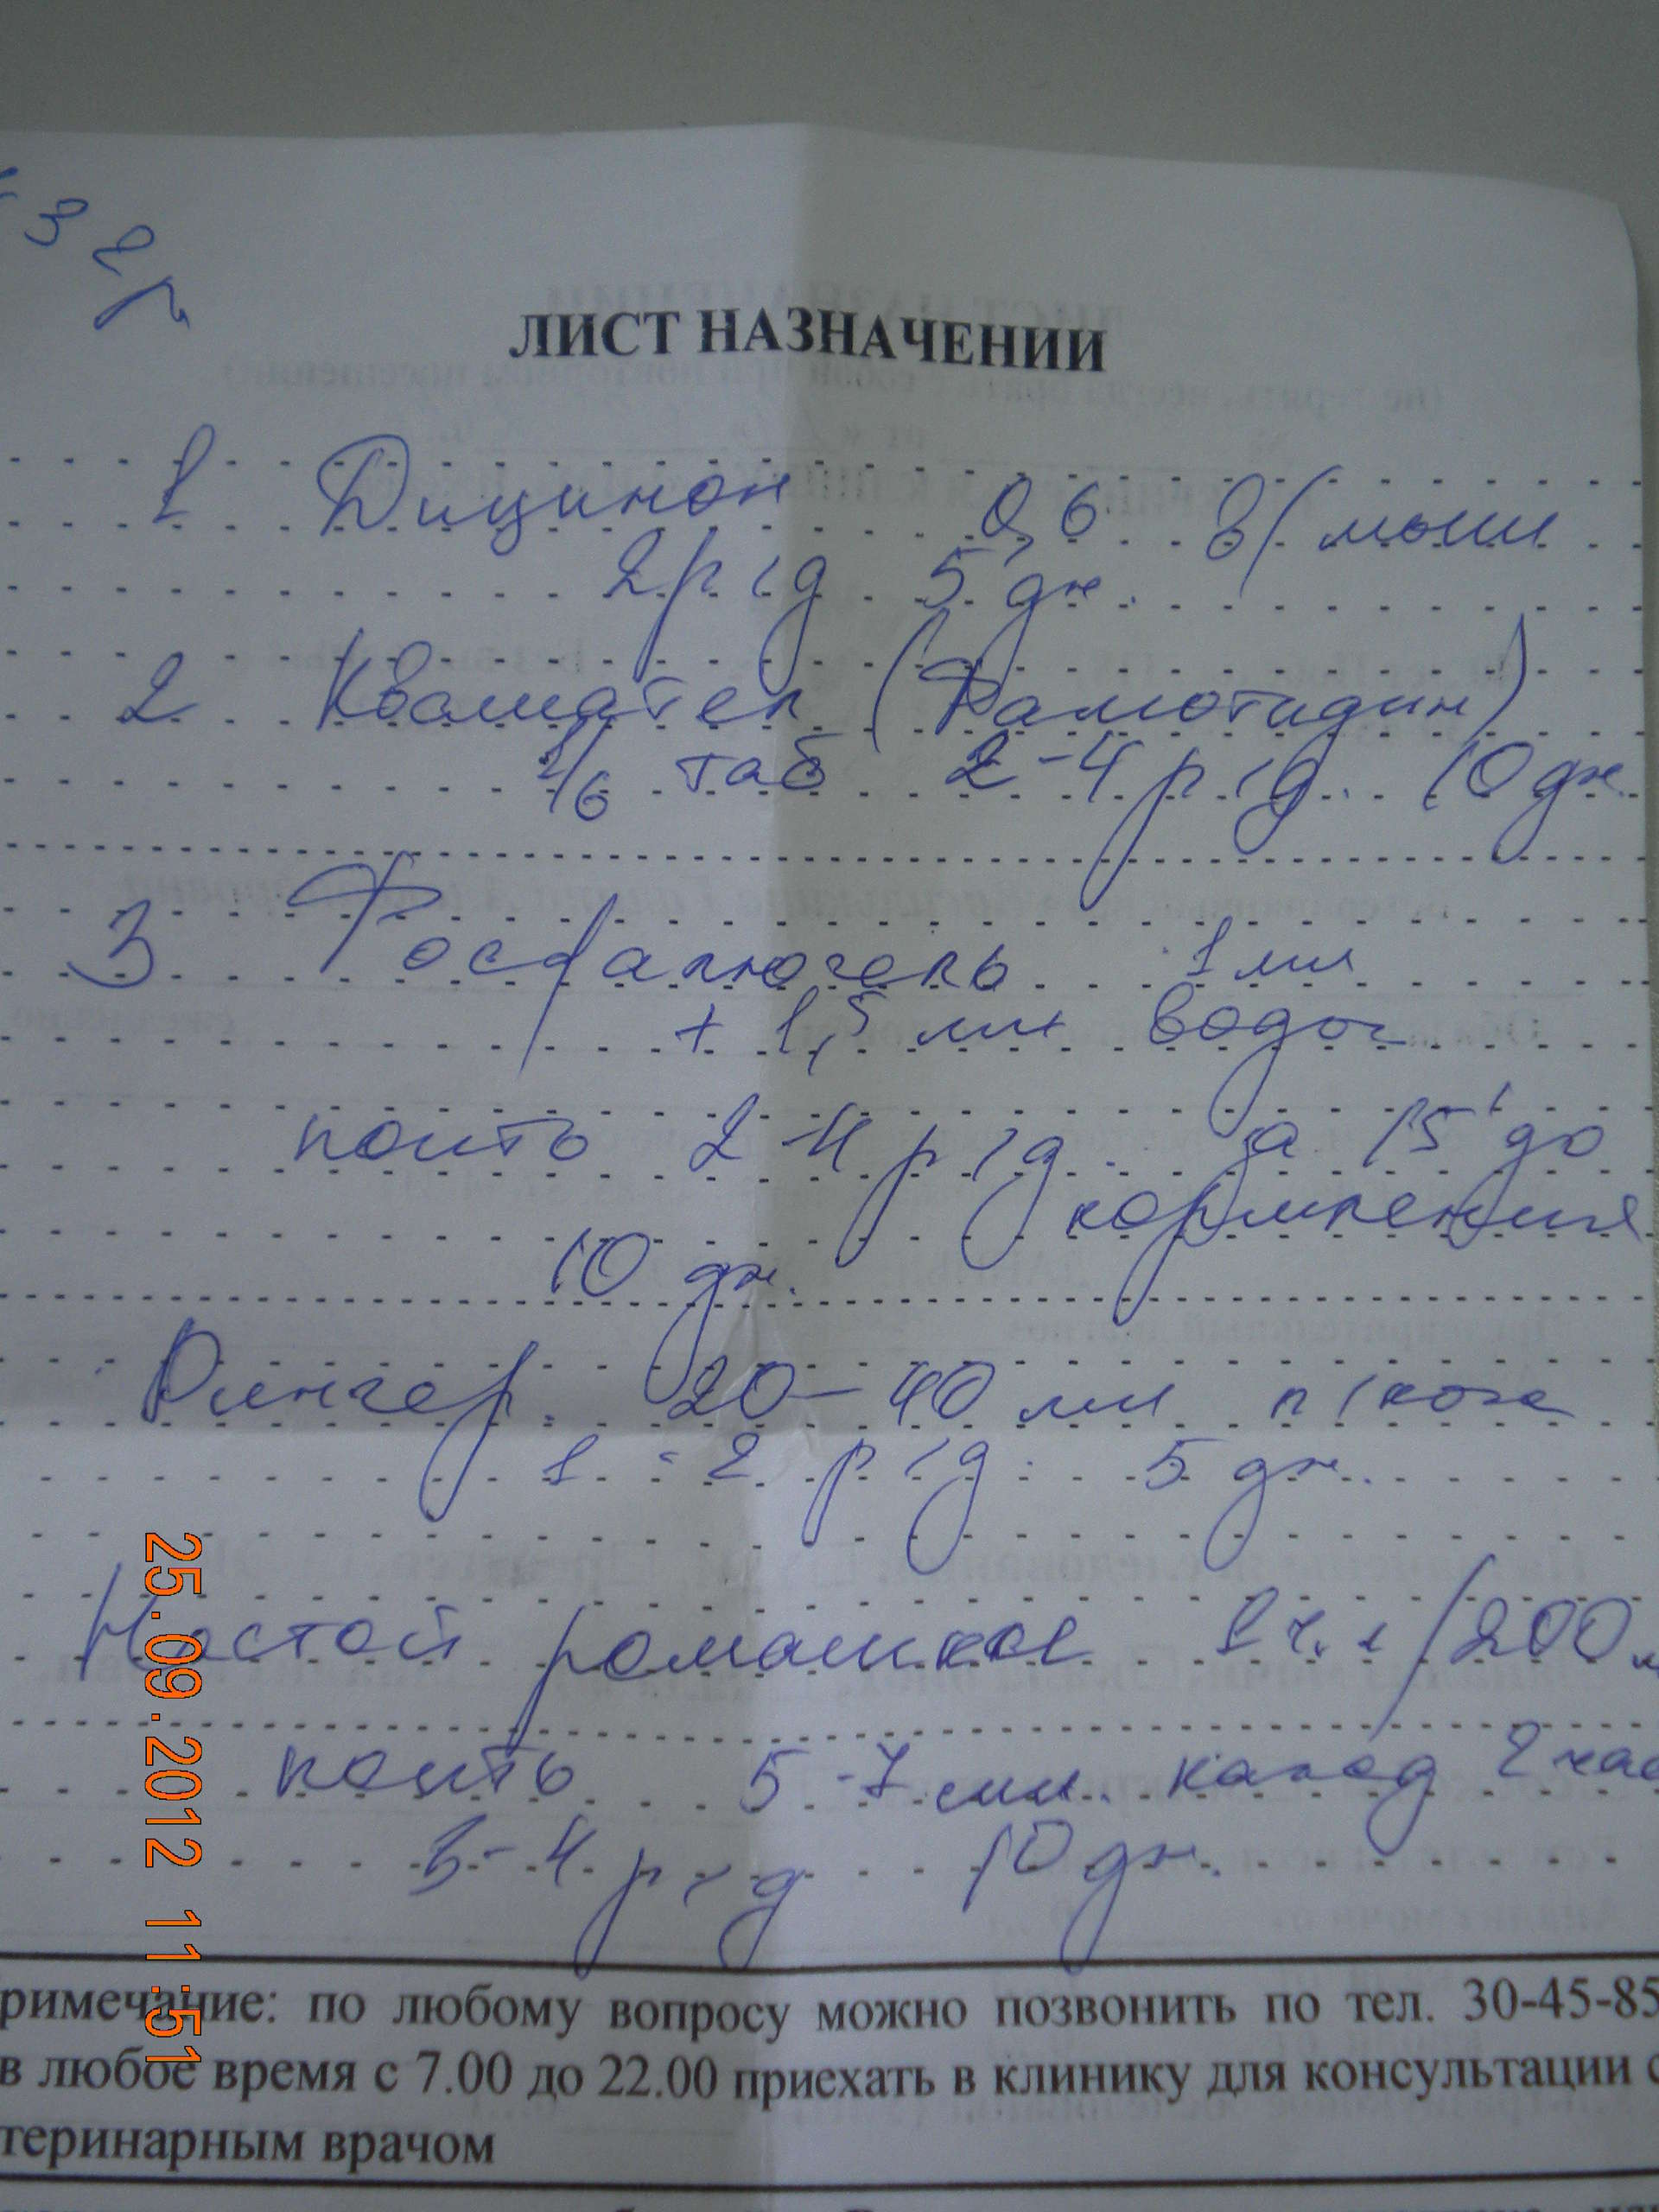 3 2
ЛИСТ НАЗНАЧЕНИИ
1 Дицинон 0,6 в/мыш
2 р/д 5 дн.
2 Квамател (Фамотидин)
1/6 таб 2-4 р/д. 10 дн.
3 Фосфалюгель 1 мл
+ 1,5 мл воды
поить 2-4 р/д. за 15' до
кормления
10 дн.
Рингер. 20-40 мл п/кожн
1-2 р/д. 5 дн.
Настой ромашки 1 ч.л/200 м
поить 5-7 мл. кажд 2 час
3-4 р/д 10 дн.
римечание: по любому вопросу можно позвонить по тел. 30-45-85
в любое время с 7.00 до 22.00 приехать в клинику для консультации с
теринарным врачом
25.09.2012 11:51